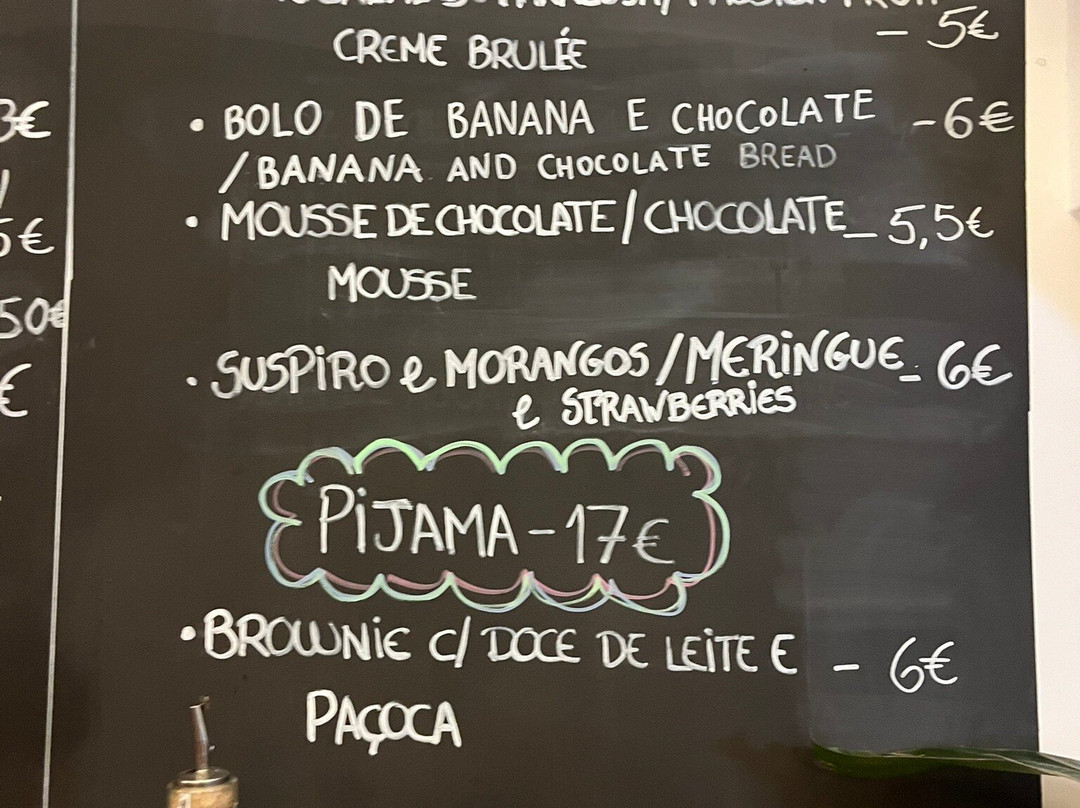 CREME BRULÉE
- 5€
• BOLO DE BANANA E CHOCOLATE - 6€
/ BANANA AND CHOCOLATE BREAD
• MOUSSE DE CHOCOLATE / CHOCOLATE - 5,5€
MOUSSE
• SUSPIRO e MORANGOS / MERINGUE - 6€
e STRAWBERRIES
PIJAMA - 17€
• BROWNIE C/ DOCE DE LEITE E - 6€
PAÇOCA
3€
5€
50€
€